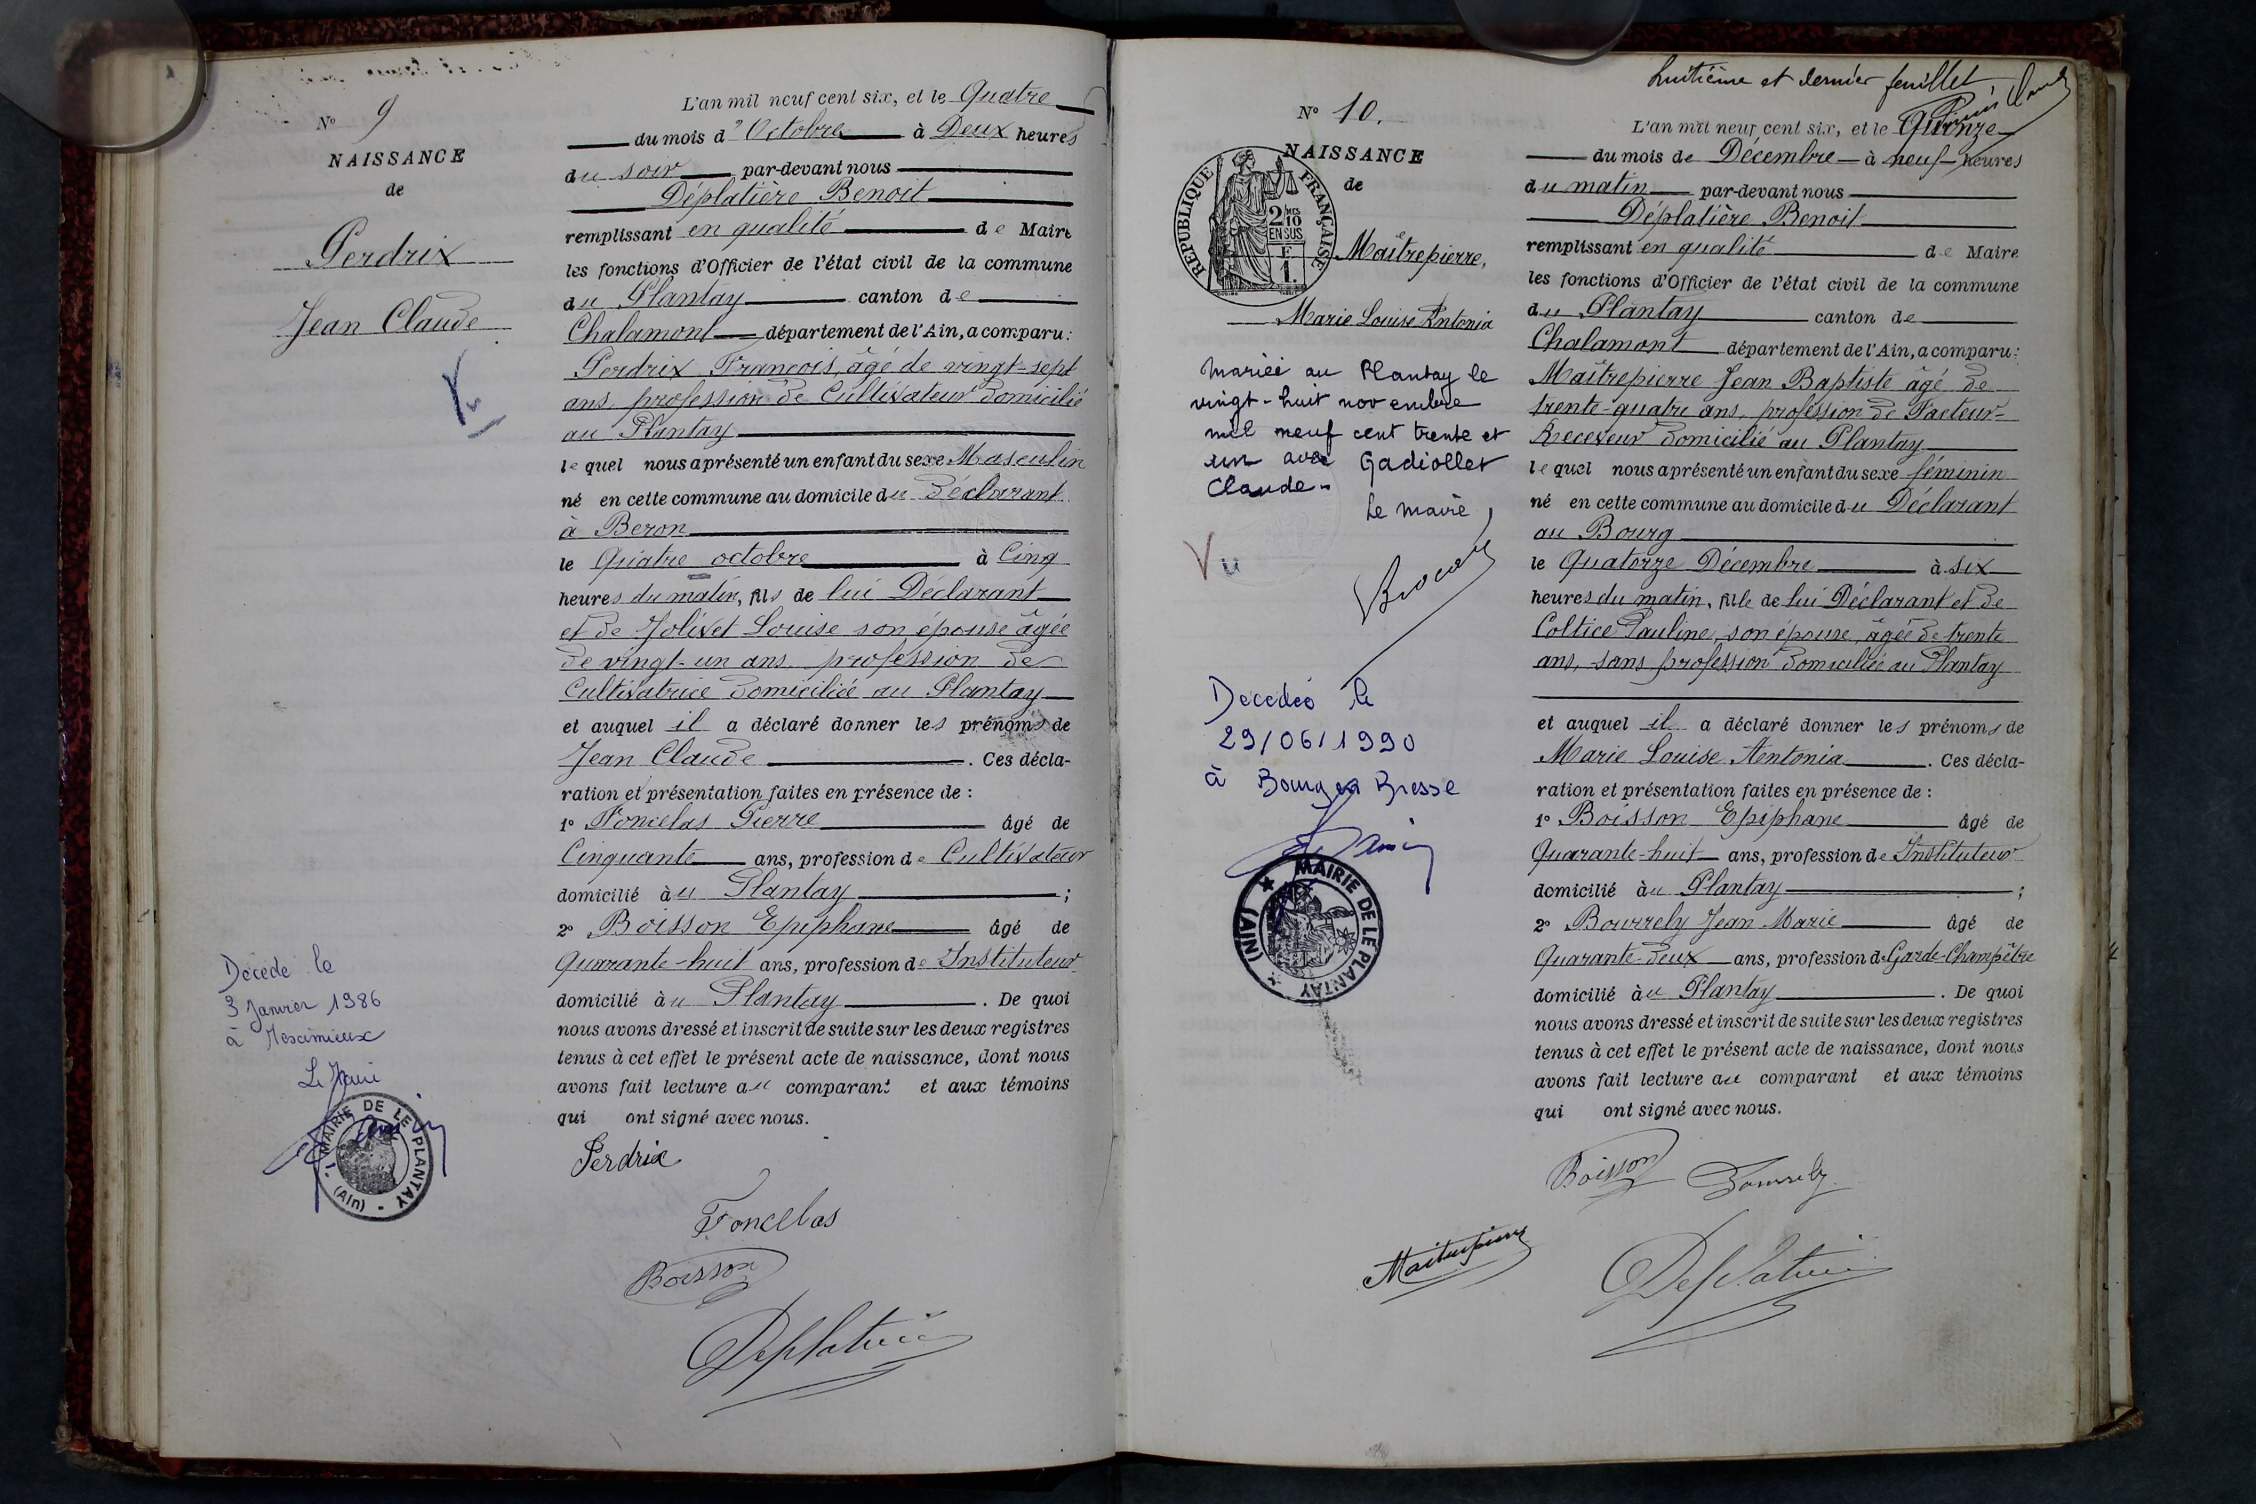 Nº 9
NAISSANCE
de
Perdrix
Jean Claude
Vu
Décédé le
3 Janvier 1986
à Meximieux
Le Maire
MAIRIE DE LE PLANTAY
(Ain)
L'an mil neuf cent six, et le Quatre
du mois d'Octobre à Deux heures
du soir par-devant nous
Déplatière Benoit
remplissant en qualité de Maire
les fonctions d'Officier de l'état civil de la commune
du Plantay canton de
Chalamont département de l'Ain, a comparu :
Perdrix Francois, âgé de vingt-sept
ans, profession de Cultivateur domicilié
au Plantay
lequel nous a présenté un enfant du sexe Masculin
né en cette commune au domicile du Déclarant
à Beron
le Quatre octobre à Cinq
heures du matin, fils de lui Déclarant
et de Jolivet Louise son épouse âgée
de vingt-un ans, profession de
Cultivatrice domiciliée au Plantay
et auquel il a déclaré donner les prénoms de
Jean Claude . Ces décla-
ration et présentation faites en présence de :
1º Foncelas Pierre âgé de
Cinquante ans, profession de Cultivateur
domicilié à u Plantay ;
2º Boisson Epiphane âgé de
Quarante-huit ans, profession de Instituteur
domicilié à u Plantay . De quoi
nous avons dressé et inscrit de suite sur les deux registres
tenus à cet effet le présent acte de naissance, dont nous
avons fait lecture au comparant et aux témoins
qui ont signé avec nous.
Perdrix
Foncelas
Boisson
Deplatière
huitième et dernier feuillet
Nº 10.
NAISSANCE
de
RÉPUBLIQUE FRANÇAISE
2/10 EN SUS
F 1.
Maîtrepierre,
Marie Louise Antonia
Mariée au Plantay le
vingt-huit novembre
mil neuf cent trente et
un avec Gadiollet
Claude.
Le maire,
Vu
Brocard
Décédée le
29/06/1990
à Bourg en Bresse
MAIRIE DE LE PLANTAY
(AIN)
L'an mil neuf cent six, et le Quinze
du mois de Décembre à neuf heures
du matin par-devant nous
Déplatière Benoit
remplissant en qualité de Maire
les fonctions d'Officier de l'état civil de la commune
du Plantay canton de
Chalamont département de l'Ain, a comparu :
Maîtrepierre Jean Baptiste âgé de
trente-quatre ans, profession de Facteur-
Receveur domicilié au Plantay
lequel nous a présenté un enfant du sexe féminin
né en cette commune au domicile du Déclarant
au Bourg
le Quatorze Décembre à six
heures du matin, fille de lui Déclarant et de
Coltice Pauline, son épouse, âgée de trente
ans, sans profession domiciliée au Plantay
et auquel il a déclaré donner les prénoms de
Marie Louise Antonia . Ces décla-
ration et présentation faites en présence de :
1º Boisson Epiphane âgé de
Quarante-huit ans, profession de Instituteur
domicilié à u Plantay ;
2º Bourrely Jean Marie âgé de
Quarante-deux ans, profession de Garde-Champêtre
domicilié à u Plantay . De quoi
nous avons dressé et inscrit de suite sur les deux registres
tenus à cet effet le présent acte de naissance, dont nous
avons fait lecture au comparant et aux témoins
qui ont signé avec nous.
Boisson Bourrely
Maitrepierre
Deplatière